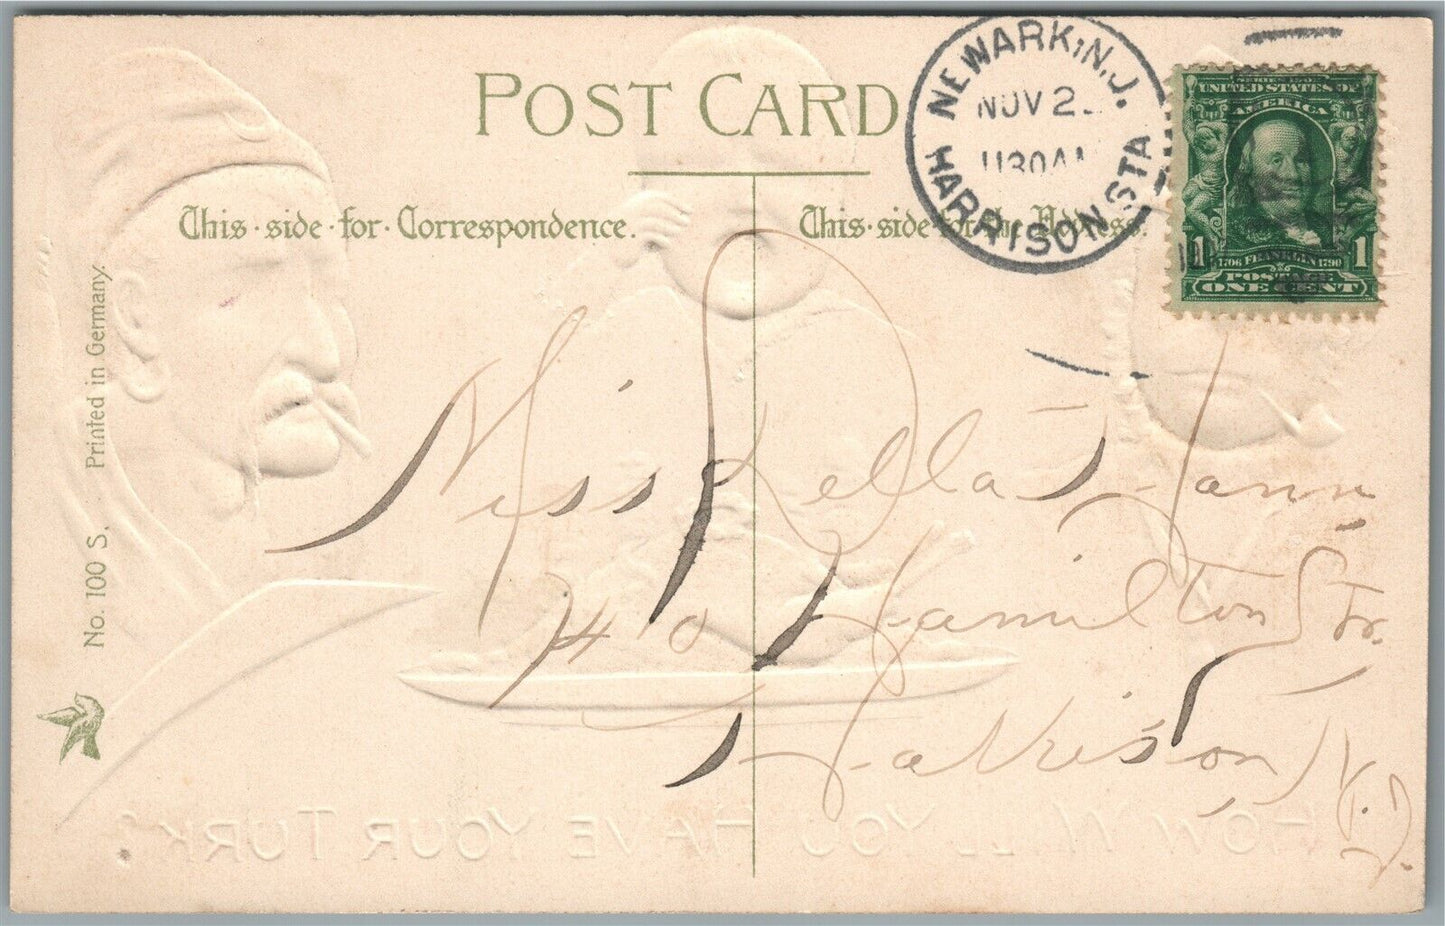 POST CARD
This·side·for·Correspondence.
This·side·for·the Address.
NEWARK, N.J.
NOV 2
1130AM
HARRISON STA
SERIES 1902
UNITED STATES OF
AMERICA
1 1
1706 FRANKLIN 1790
POSTAGE
ONE CENT
No. 100 S. Printed in Germany.
Miss Della Hann
40 Hamilton Str.
Harrison N.J.
HOW WILL YOU HAVE YOUR TURK?